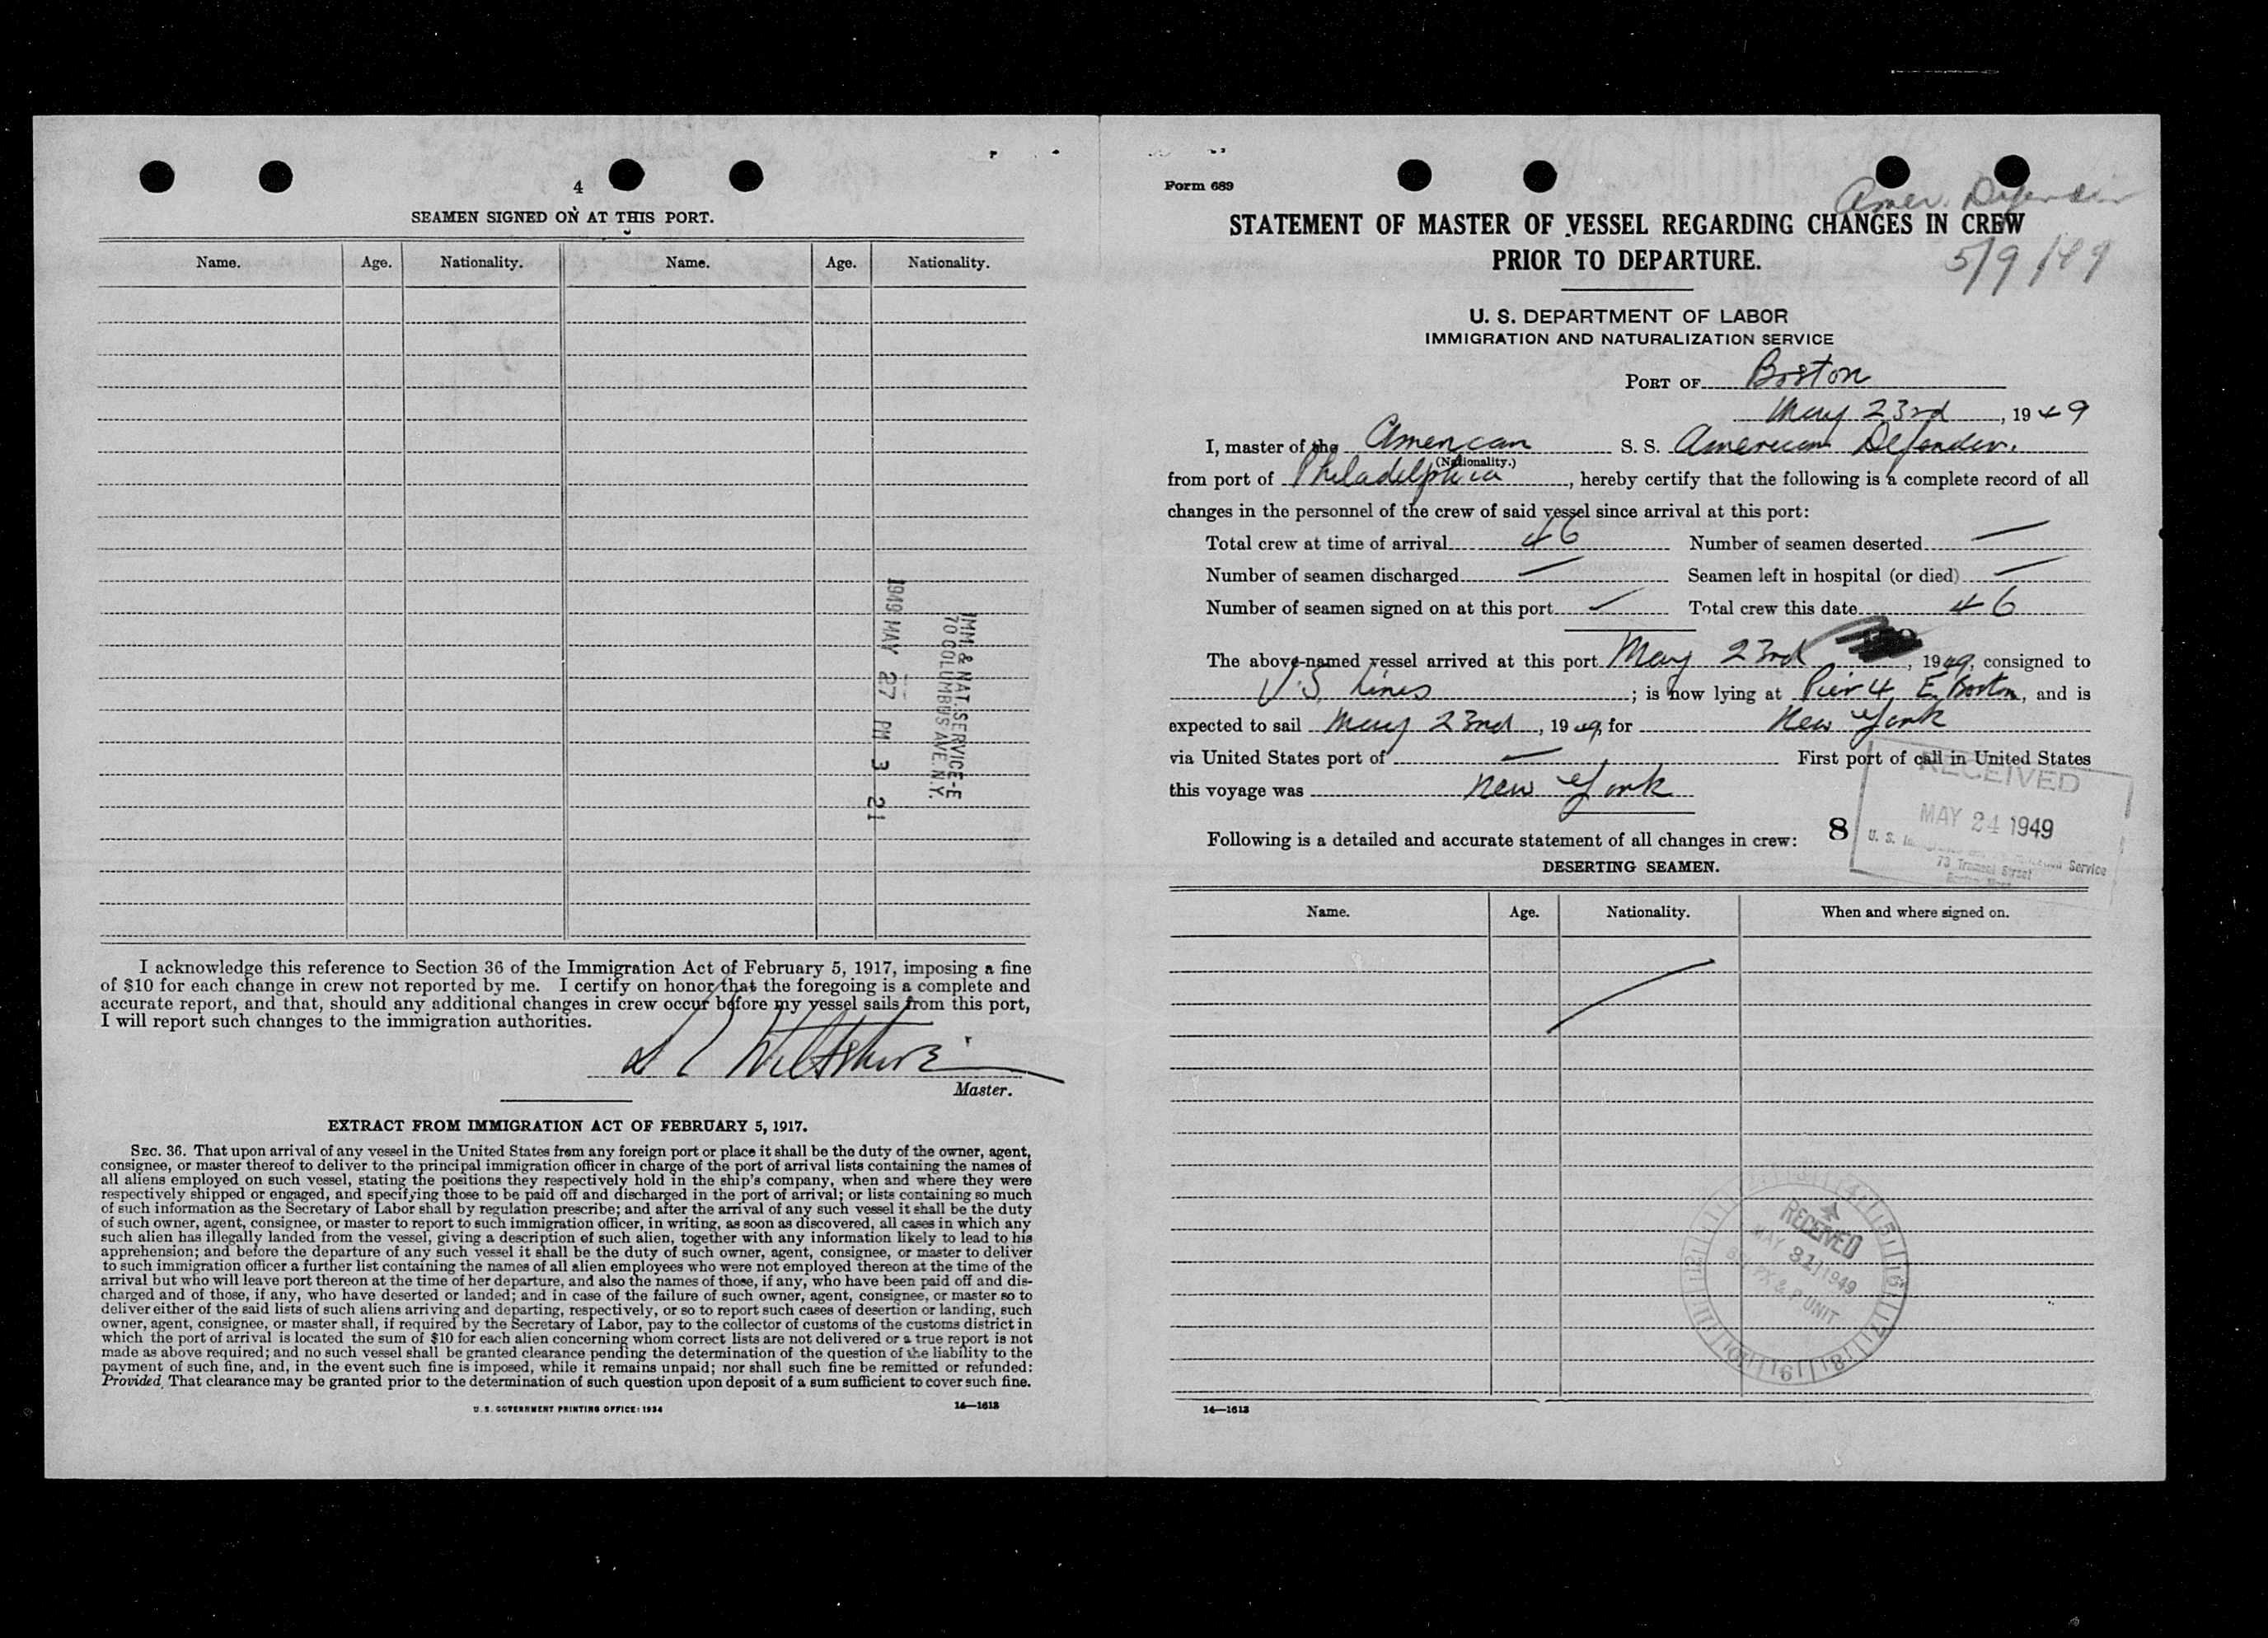 4
SEAMEN SIGNED ON AT THIS PORT.
Name. Age. Nationality. Name. Age. Nationality.
1949 MAY 27 PM 3 21
IMM. & NAT. SERVICE-E
70 COLUMBUS AVE. N.Y.
I acknowledge this reference to Section 36 of the Immigration Act of February 5, 1917, imposing a fine
of $10 for each change in crew not reported by me. I certify on honor that the foregoing is a complete and
accurate report, and that, should any additional changes in crew occur before my vessel sails from this port,
I will report such changes to the immigration authorities.
Wiltshire
Master.
EXTRACT FROM IMMIGRATION ACT OF FEBRUARY 5, 1917.
SEC. 36. That upon arrival of any vessel in the United States from any foreign port or place it shall be the duty of the owner, agent,
consignee, or master thereof to deliver to the principal immigration officer in charge of the port of arrival lists containing the names of
all aliens employed on such vessel, stating the positions they respectively hold in the ship's company, when and where they were
respectively shipped or engaged, and specifying those to be paid off and discharged in the port of arrival; or lists containing so much
of such information as the Secretary of Labor shall by regulation prescribe; and after the arrival of any such vessel it shall be the duty
of such owner, agent, consignee, or master to report to such immigration officer, in writing, as soon as discovered, all cases in which any
such alien has illegally landed from the vessel, giving a description of such alien, together with any information likely to lead to his
apprehension; and before the departure of any such vessel it shall be the duty of such owner, agent, consignee, or master to deliver
to such immigration officer a further list containing the names of all alien employees who were not employed thereon at the time of the
arrival but who will leave port thereon at the time of her departure, and also the names of those, if any, who have been paid off and dis-
charged and of those, if any, who have deserted or landed; and in case of the failure of such owner, agent, consignee, or master so to
deliver either of the said lists of such aliens arriving and departing, respectively, or so to report such cases of desertion or landing, such
owner, agent, consignee, or master shall, if required by the Secretary of Labor, pay to the collector of customs of the customs district in
which the port of arrival is located the sum of $10 for each alien concerning whom correct lists are not delivered or a true report is not
made as above required; and no such vessel shall be granted clearance pending the determination of the question of the liability to the
payment of such fine, and, in the event such fine is imposed, while it remains unpaid; nor shall such fine be remitted or refunded:
Provided, That clearance may be granted prior to the determination of such question upon deposit of a sum sufficient to cover such fine.
U. S. GOVERNMENT PRINTING OFFICE: 1934 14—1613
Form 689
Amer. Defender
5/9/49
STATEMENT OF MASTER OF VESSEL REGARDING CHANGES IN CREW
PRIOR TO DEPARTURE.
U. S. DEPARTMENT OF LABOR
IMMIGRATION AND NATURALIZATION SERVICE
PORT OF Boston
May 23rd, 1949
I, master of the American S. S. American Defender.
(Nationality.)
from port of Philadelphia, hereby certify that the following is a complete record of all
changes in the personnel of the crew of said vessel since arrival at this port:
Total crew at time of arrival 46 Number of seamen deserted —
Number of seamen discharged — Seamen left in hospital (or died) —
Number of seamen signed on at this port — Total crew this date 46
The above-named vessel arrived at this port May 23rd, 1949, consigned to
U.S. Lines; is now lying at Pier 4, E. Boston, and is
expected to sail May 23rd, 1949, for New York
via United States port of — First port of call in United States
this voyage was New York
RECEIVED
MAY 24 1949
U. S. Service
73 Tremont Street
Following is a detailed and accurate statement of all changes in crew: 8
DESERTING SEAMEN.
Name. Age. Nationality. When and where signed on.
RECEIVED
MAY 31 1949
& P UNIT
14—1613